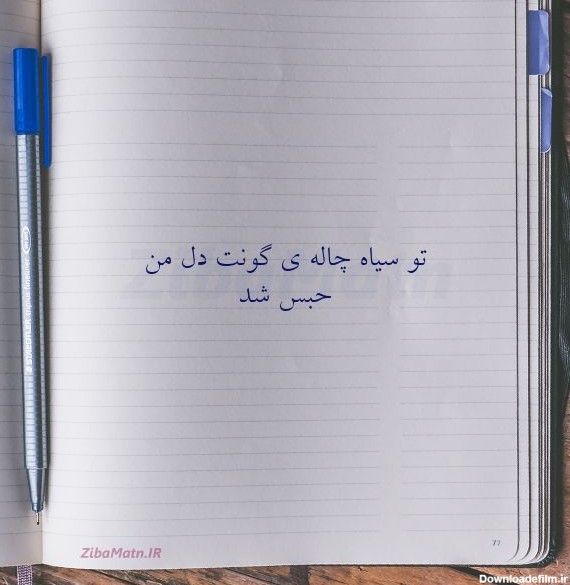 تو سیاه چاله ی گونت دل من
حبس شد
77
ZibaMatn.IR
Downloadefilm.ir